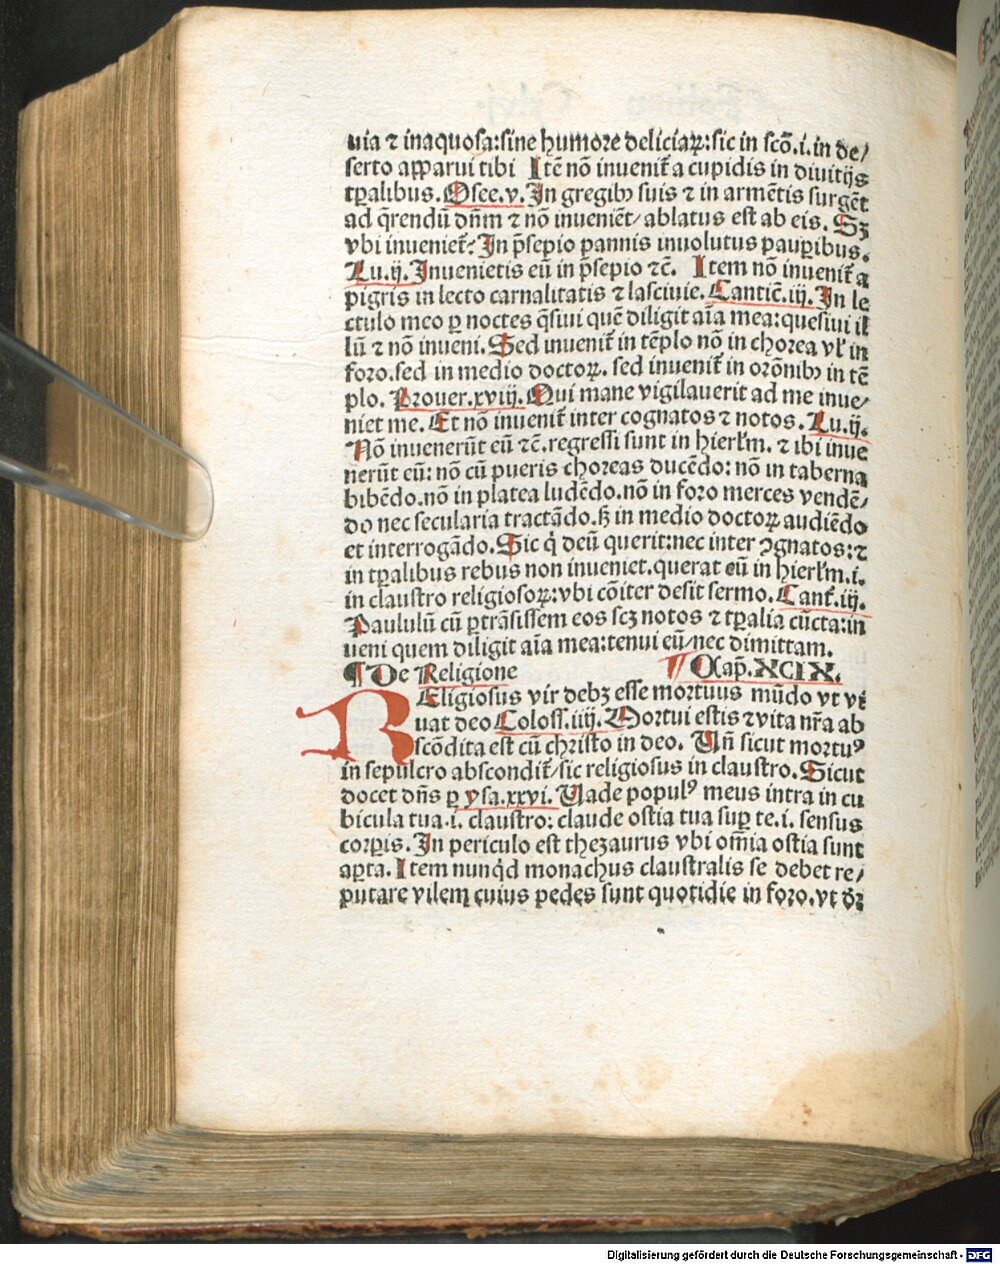 uia ⁊ inaquosa:sine humore deliciaꝝ:sic in scō.i.in de/
serto apparui tibi Itē nō inuenit̄ a cupidis in diuitijs
tp̄alibus.Osee.v.In gregibꝫ suis ⁊ in armētis surgēt
ad q̄rendū dn̄m ⁊ nō inueniēt/ablatus est ab eis.Sꝫ
vbi inueniet̄?In p̄sepio pannis inuolutus paup̲ibus.
Lu.ij.Inuenietis eū in p̄sepio ⁊c̄. Item nō inuenit̄ a
pigris in lecto carnalitatis ⁊ lasciuie.Cantic̄.iij.In le
ctulo meo ꝑ noctes q̄siui quē diligit aīa mea:quesiui il
lū ⁊ nō inueni.Sed inuenit̄ in tēplo nō in chorea vl̕ in
foro.sed in medio doctoꝝ. sed inuenit̄ in orōnibꝫ in tē
plo. Prouer.xviij.Qui mane vigilauerit ad me inue/
niet me. Et nō inuenit̄ inter cognatos ⁊ notos.Lu.ij.
Nō inuenerūt eū ⁊c̄.regressi sunt in hierl̕m. ⁊ ibi inue
nerūt eū: nō cū pueris choreas ducēdo: nō in taberna
bibēdo.nō in platea ludēdo.nō in foro merces vendē/
do nec secularia tractādo.sꝫ in medio doctoꝝ audiēdo
et interrogādo.Sic q̇ deū querit:nec inter ꝯgnatos:⁊
in tp̄alibus rebus non inueniet.querat eū in hierl̕m.i.
in claustro religiosoꝝ:vbi cōiter desit sermo.Cant̄.iij.
Paululū cū ꝑtrāsissem eos scꝫ notos ⁊ tp̄alia cūcta:in
ueni quem diligit aīa mea:tenui eū/nec dimittam.
¶De Religione Cap̄.XCIX.
REligiosus vir debꝫ esse mortuus mūdo vt vi
uat deo Coloss.iiij.Mortui estis ⁊vita nr̄a ab
scōdita est cū christo in deo. Vn̄ sicut mortuꝰ
in sepulcro abscondit̄/sic religiosus in claustro.Sicut
docet dn̄s ꝑ ysa.xxvi.Vade populꝰ meus intra in cu
bicula tua.i. claustro: claude ostia tua suꝑ te.i. sensus
corꝑis.In periculo est thezaurus vbi om̄ia ostia sunt
aꝑta.Item nunq̇d monachus claustralis se debet re/
putare vilem cuius pedes sunt quotidie in foro.vt dr̄
Digitalisierung gefördert durch die Deutsche Forschungsgemeinschaft - DFG